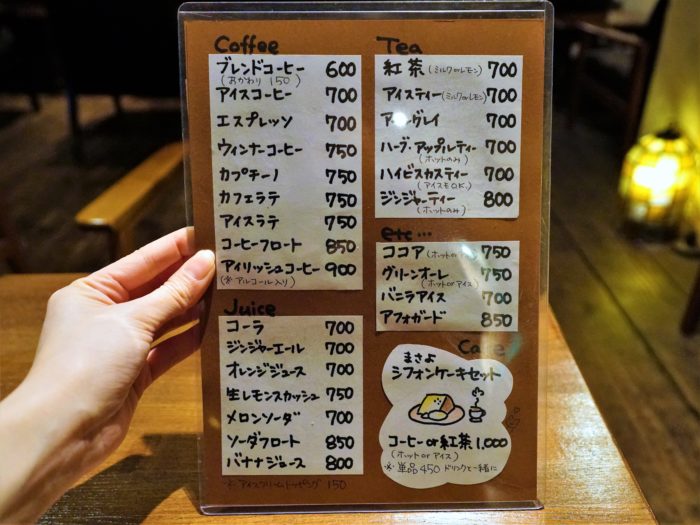 Coffee
ブレンドコーヒー 600
(おかわり 150)
アイスコーヒー 700
エスプレッソ 700
ウィンナーコーヒー 750
カプチーノ 750
カフェラテ 750
アイスラテ 750
コーヒーフロート 850
アイリッシュコーヒー 900
(※アルコール入り)
Juice
コーラ 700
ジンジャーエール 700
オレンジジュース 700
生レモンスカッシュ 750
メロンソーダ 700
ソーダフロート 850
バナナジュース 800
※アイスクリームトッピング 150
Tea
紅茶(ミルクorレモン) 700
アイスティー(ミルクorレモン) 700
アールグレイ 700
ハーブ・アップルティー 700
(ホットのみ)
ハイビスカスティー 700
(アイスもO.K.)
ジンジャーティー 800
(ホットのみ)
etc…
ココア(ホットor 750
グリーンオーレ 750
(ホットorアイス)
バニラアイス 700
アフォガード 850
Cake
まさよ
シフォンケーキセット
コーヒーor紅茶 1,000
(ホットorアイス)
※単品450 ドリンクと一緒に